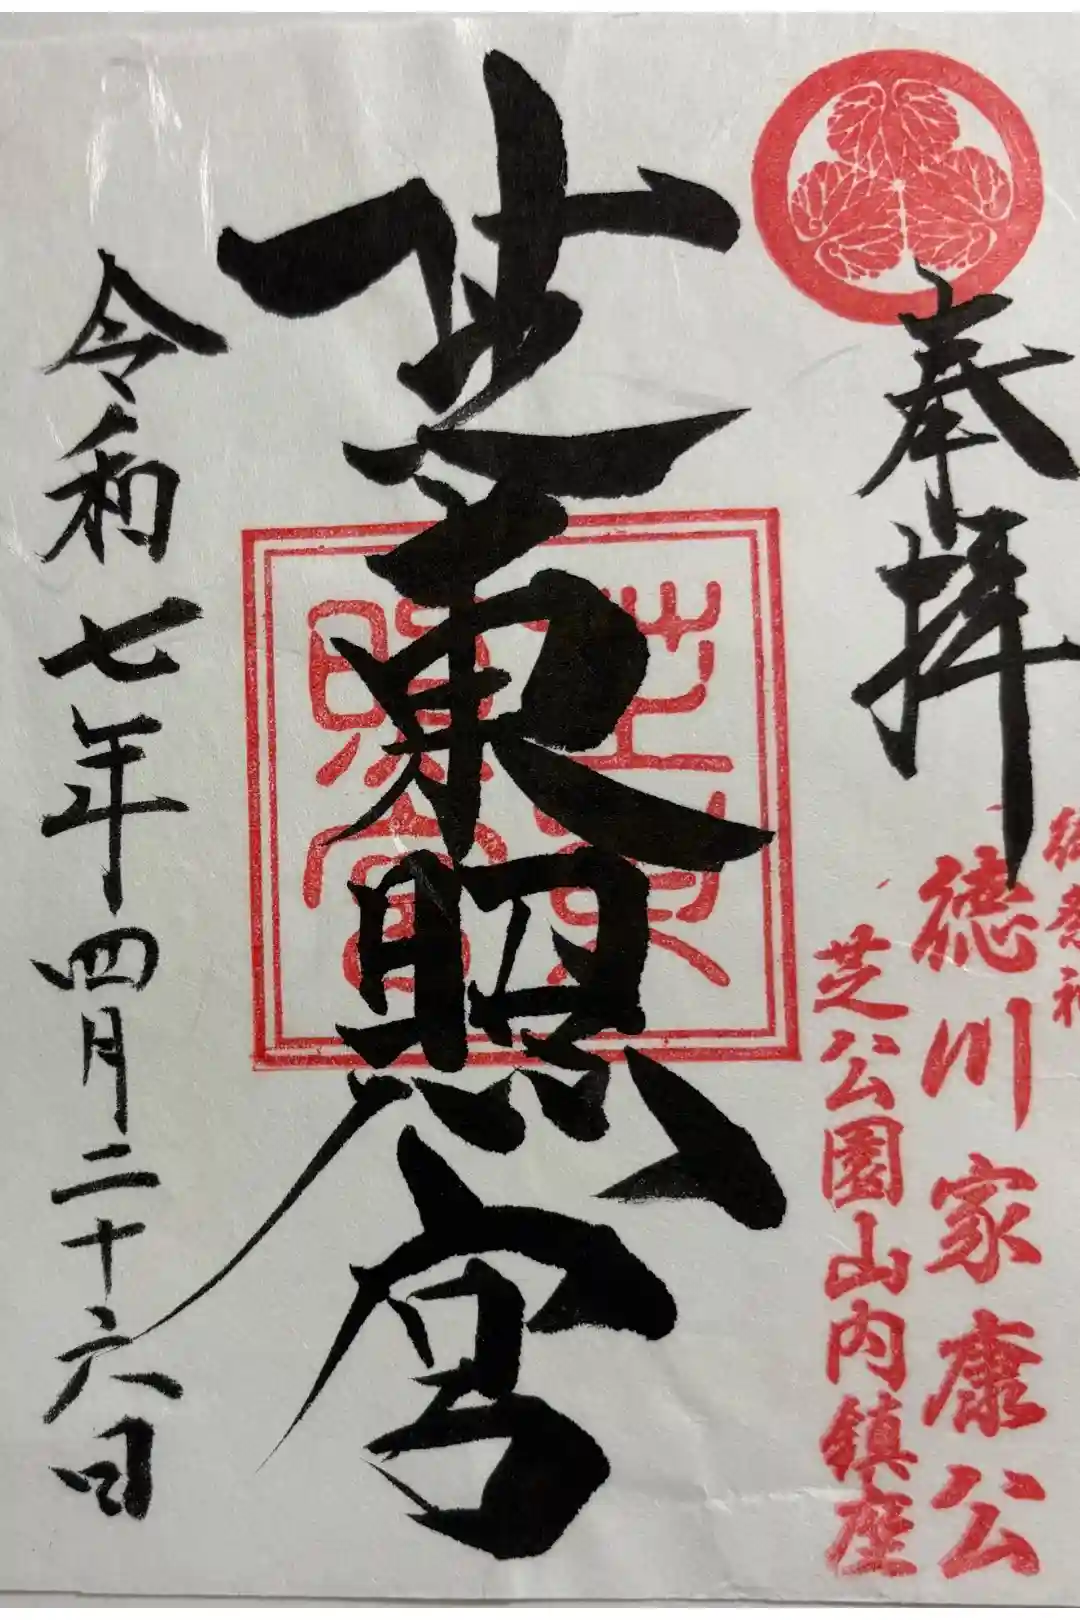 奉拝
御祭神
徳川家康公
芝公園山内鎮座
芝東照宮
芝東
照宮
令和七年四月二十六日